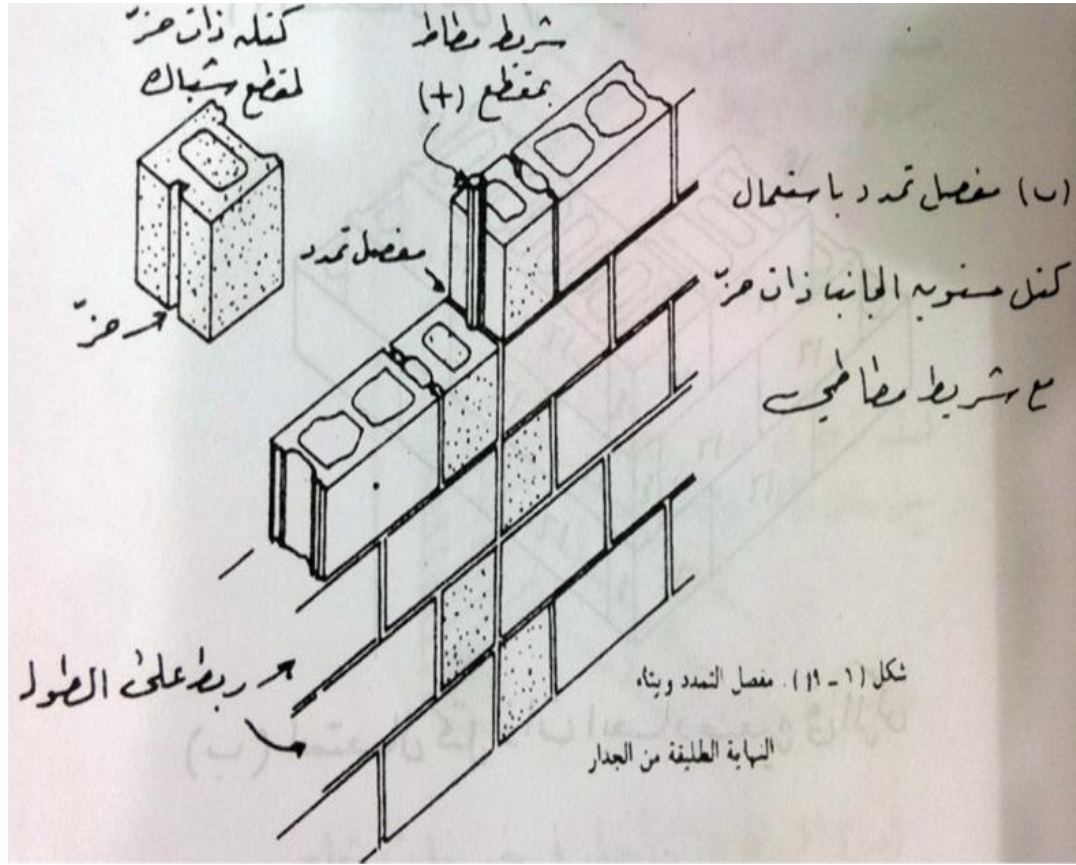 كتله ذات حزّ
لمقطع شباك
شريط مطاط
بمقطع (+)
(ب) مفصل تمدد باستعمال
مفصل تمدد
كتل مستوية الجانب ذات حزّ
حزّ
مع شريط مطاطي
ربط على الطول
شكل (١ - ١٩). مفصل التمدد وبناء
النهاية الطليقة من الجدار